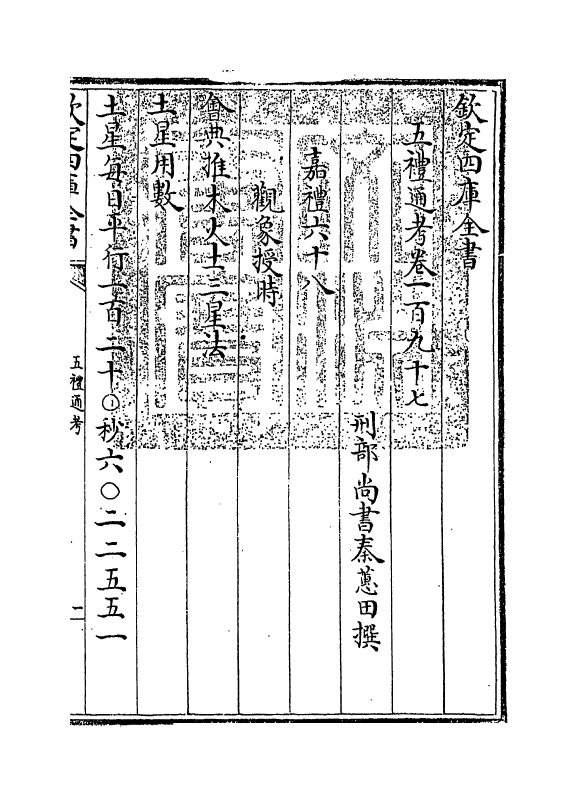 欽定四庫全書
五禮通考卷一百九十七
刑部尚書秦蕙田撰
嘉禮六十八
觀象授時
會典推木火土三星法
土星用數
土星每日平行一百二十〇秒六〇二二五五一
欽定四庫全書
五禮通考